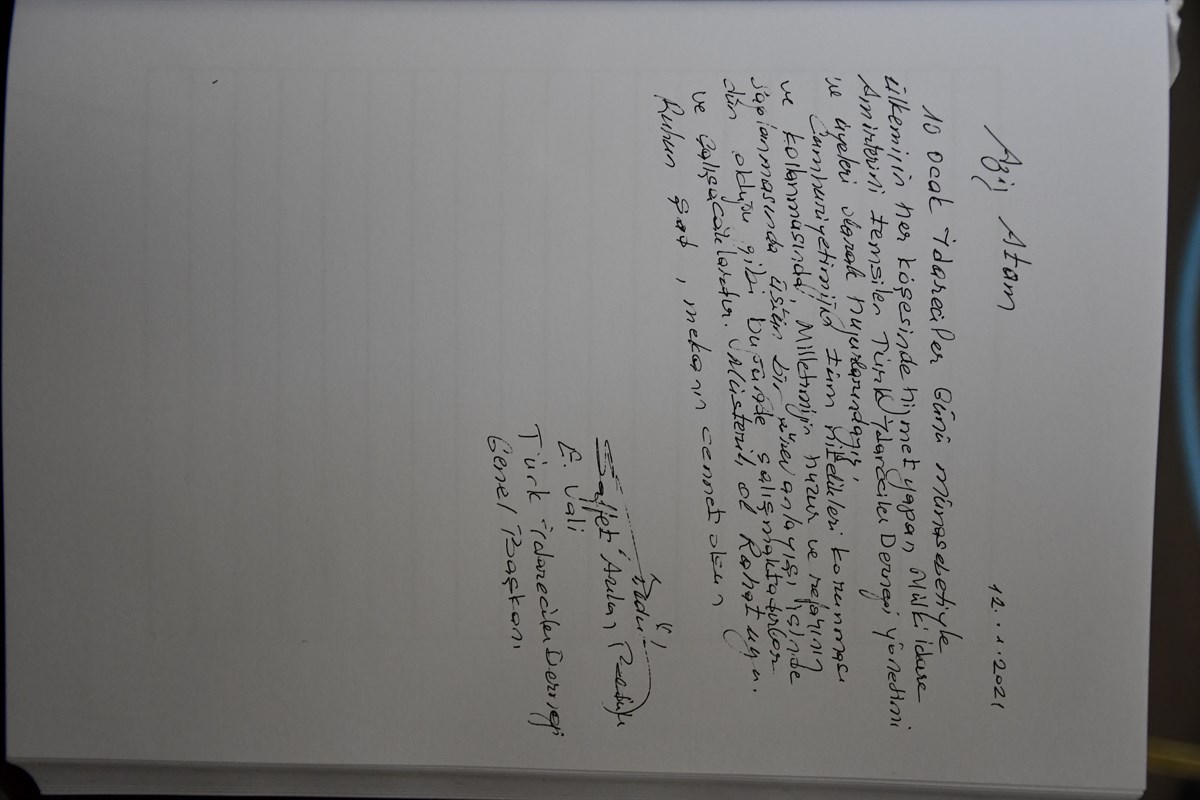 12.1.2021
Aziz Atam
10 Ocak İdareciler Günü münasebetiyle
ülkemizin her köşesinde hizmet yapan Mülki idare
Amirlerini temsilen Türk İdareciler Derneği yönetimi
ve üyeleri olarak huzurlarındayız,
Cumhuriyetimizin tüm nitelikleri korunması
ve kollanmasında, Milletimizin huzur ve refahının
sağlanmasında üstün bir görev anlayışı içinde
dün olduğu gibi bugünde çalışmaktadırlar
ve çalışacaklardır. Müsterih ol Rahat uyu.
Ruhun şad, mekanın cennet olsun
Saffet Arıkan
E. Vali
Türk İdareciler Derneği
Genel Başkanı